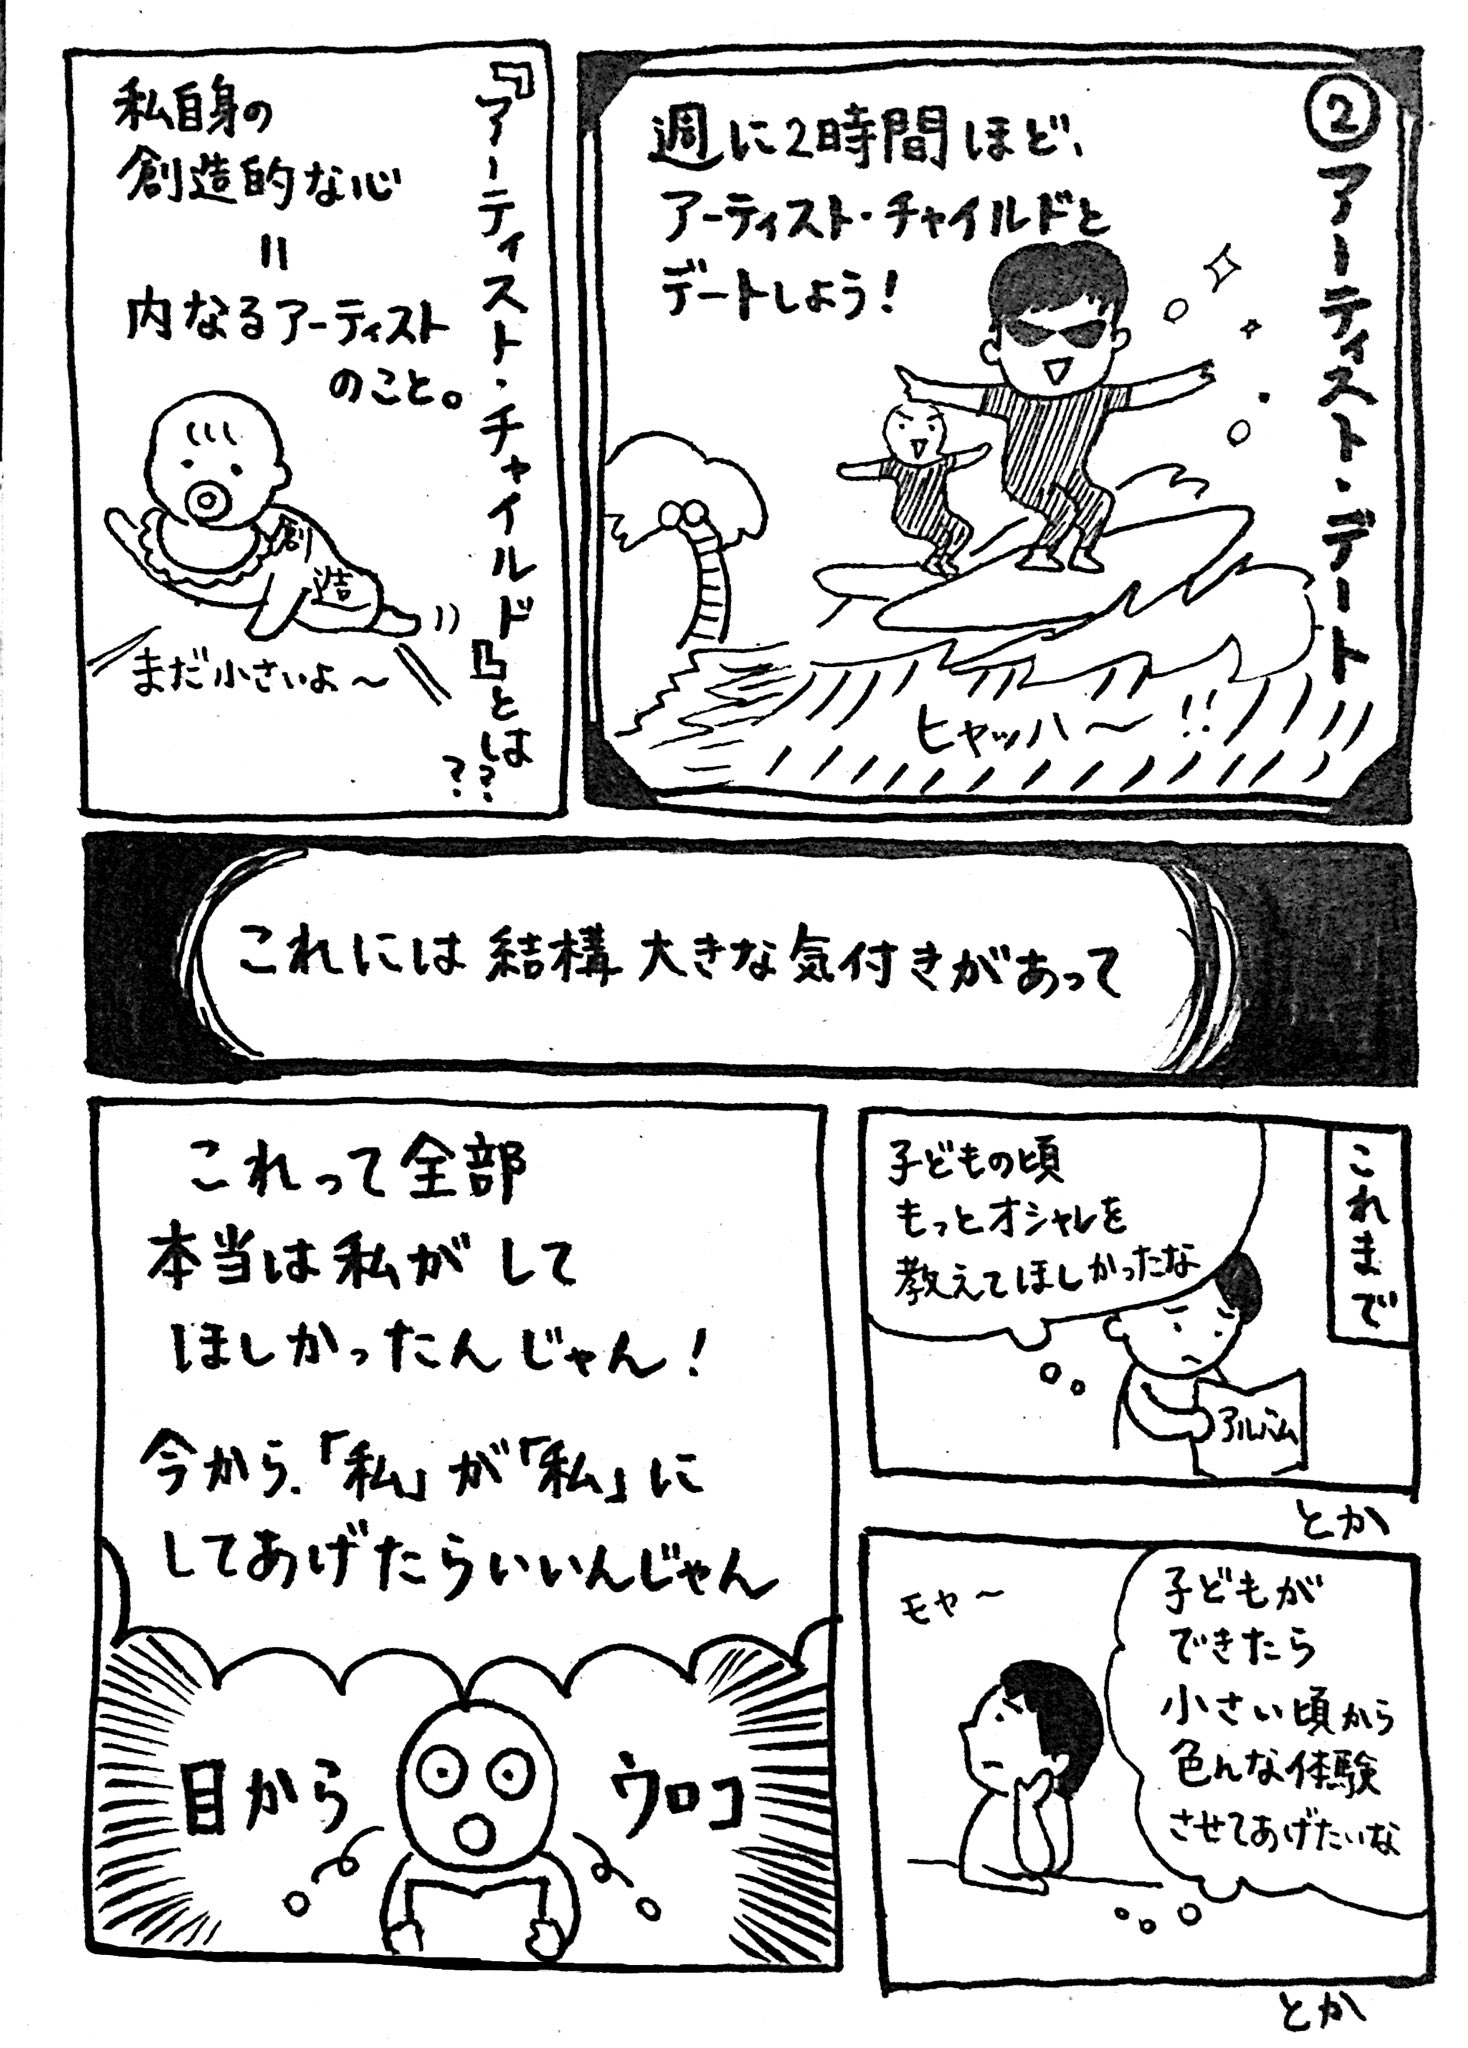 ②アーティスト・デート
週に2時間ほど、
アーティスト・チャイルドと
デートしよう!
ヒャッハ〜!!
『アーティスト・チャイルド』とは??
私自身の
創造的な心
=
内なるアーティスト
のこと。
創造
まだ小さいよ〜
これには結構大きな気付きがあって
これまで
子どもの頃
もっとオシャレを
教えてほしかったな
アルバム
とか
子どもが
できたら
小さい頃から
色んな体験
させてあげたいな
モヤ〜
とか
これって全部
本当は私がして
ほしかったんじゃん!
今から、「私」が「私」に
してあげたらいいんじゃん
目から
ウロコ